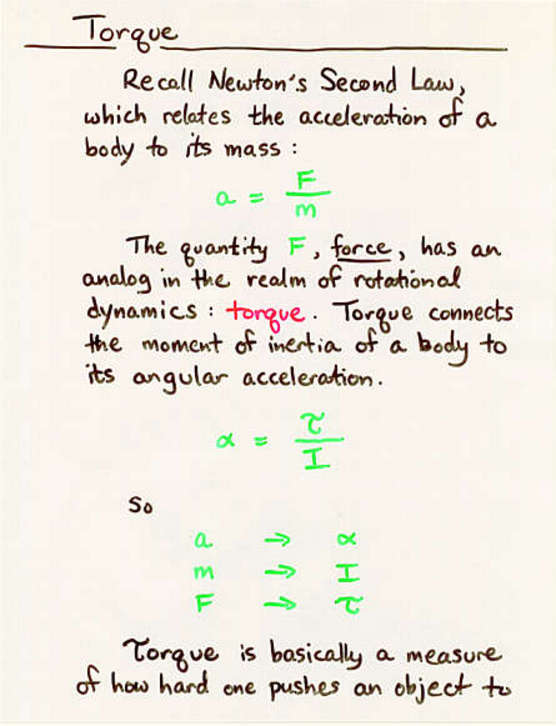 Torque
Recall Newton's Second Law,
which relates the acceleration of a
body to its mass :
a = F/m
The quantity F, force, has an
analog in the realm of rotational
dynamics : torque. Torque connects
the moment of inertia of a body to
its angular acceleration.
α = τ/I
So
a → α
m → I
F → τ
Torque is basically a measure
of how hard one pushes an object to